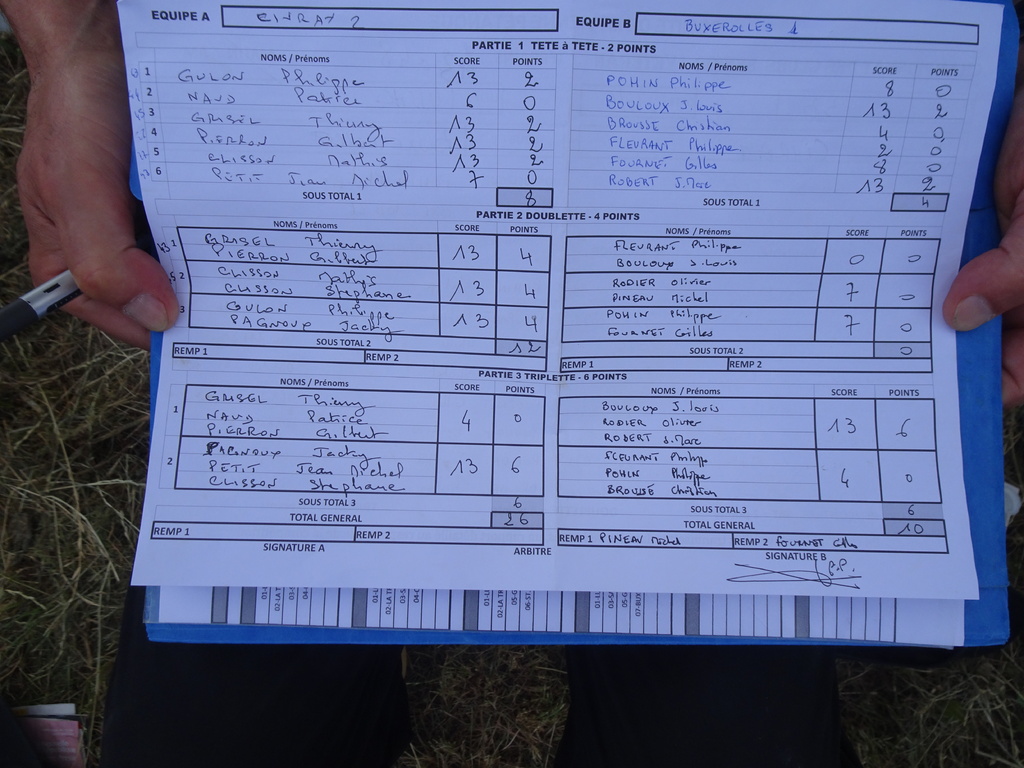 EQUIPE A CIVRAY 2 EQUIPE B BUXEROLLES 1
PARTIE 1 TETE à TETE - 2 POINTS
NOMS / Prénoms SCORE POINTS NOMS / Prénoms SCORE POINTS
1 GULON Philippe 13 2 POHIN Philippe 8 0
2 NAUD Patrice 6 0 BOULOUX J.Louis 13 2
3 GRISEL Thierry 13 2 BROUSSE Christian 4 0
4 PIERRON Gilbert 13 2 FLEURANT Philippe 2 0
5 CLISSON Mathis 13 2 FOURNET Gilles 8 0
6 PETIT Jean Michel 7 0 ROBERT J.Marc 13 2
SOUS TOTAL 1 8 SOUS TOTAL 1 4
PARTIE 2 DOUBLETTE - 4 POINTS
NOMS / Prénoms SCORE POINTS NOMS / Prénoms SCORE POINTS
1 GRISEL Thierry 13 4 FLEURANT Philippe 0 0
PIERRON Gilbert BOULOUX J.Louis
2 CLISSON Mathys 13 4 RODIER Olivier 7 0
CLISSON Stephane PINEAU Michel
3 COULON Philippe 13 4 POHIN Philippe 7 0
PAGNOUX Jacky FOURNET Gilles
SOUS TOTAL 2 12 SOUS TOTAL 2 0
REMP 1 REMP 2 REMP 1 REMP 2
PARTIE 3 TRIPLETTE - 6 POINTS
NOMS / Prénoms SCORE POINTS NOMS / Prénoms SCORE POINTS
1 GRISEL Thierry 4 0 BOULOUX J.Louis 13 6
NAUD Patrice RODIER Olivier
PIERRON Gilbert ROBERT J.Marc
2 PAGNOUX Jacky 13 6 FLEURANT Philipp 4 0
PETIT Jean Michel POHIN Philippe
CLISSON Stephane BROUSSE Christian
SOUS TOTAL 3 6 SOUS TOTAL 3 6
TOTAL GENERAL 26 TOTAL GENERAL 10
REMP 1 REMP 2 REMP 1 PINEAU Michel REMP 2 FOURNET Gilles
SIGNATURE A ARBITRE SIGNATURE B